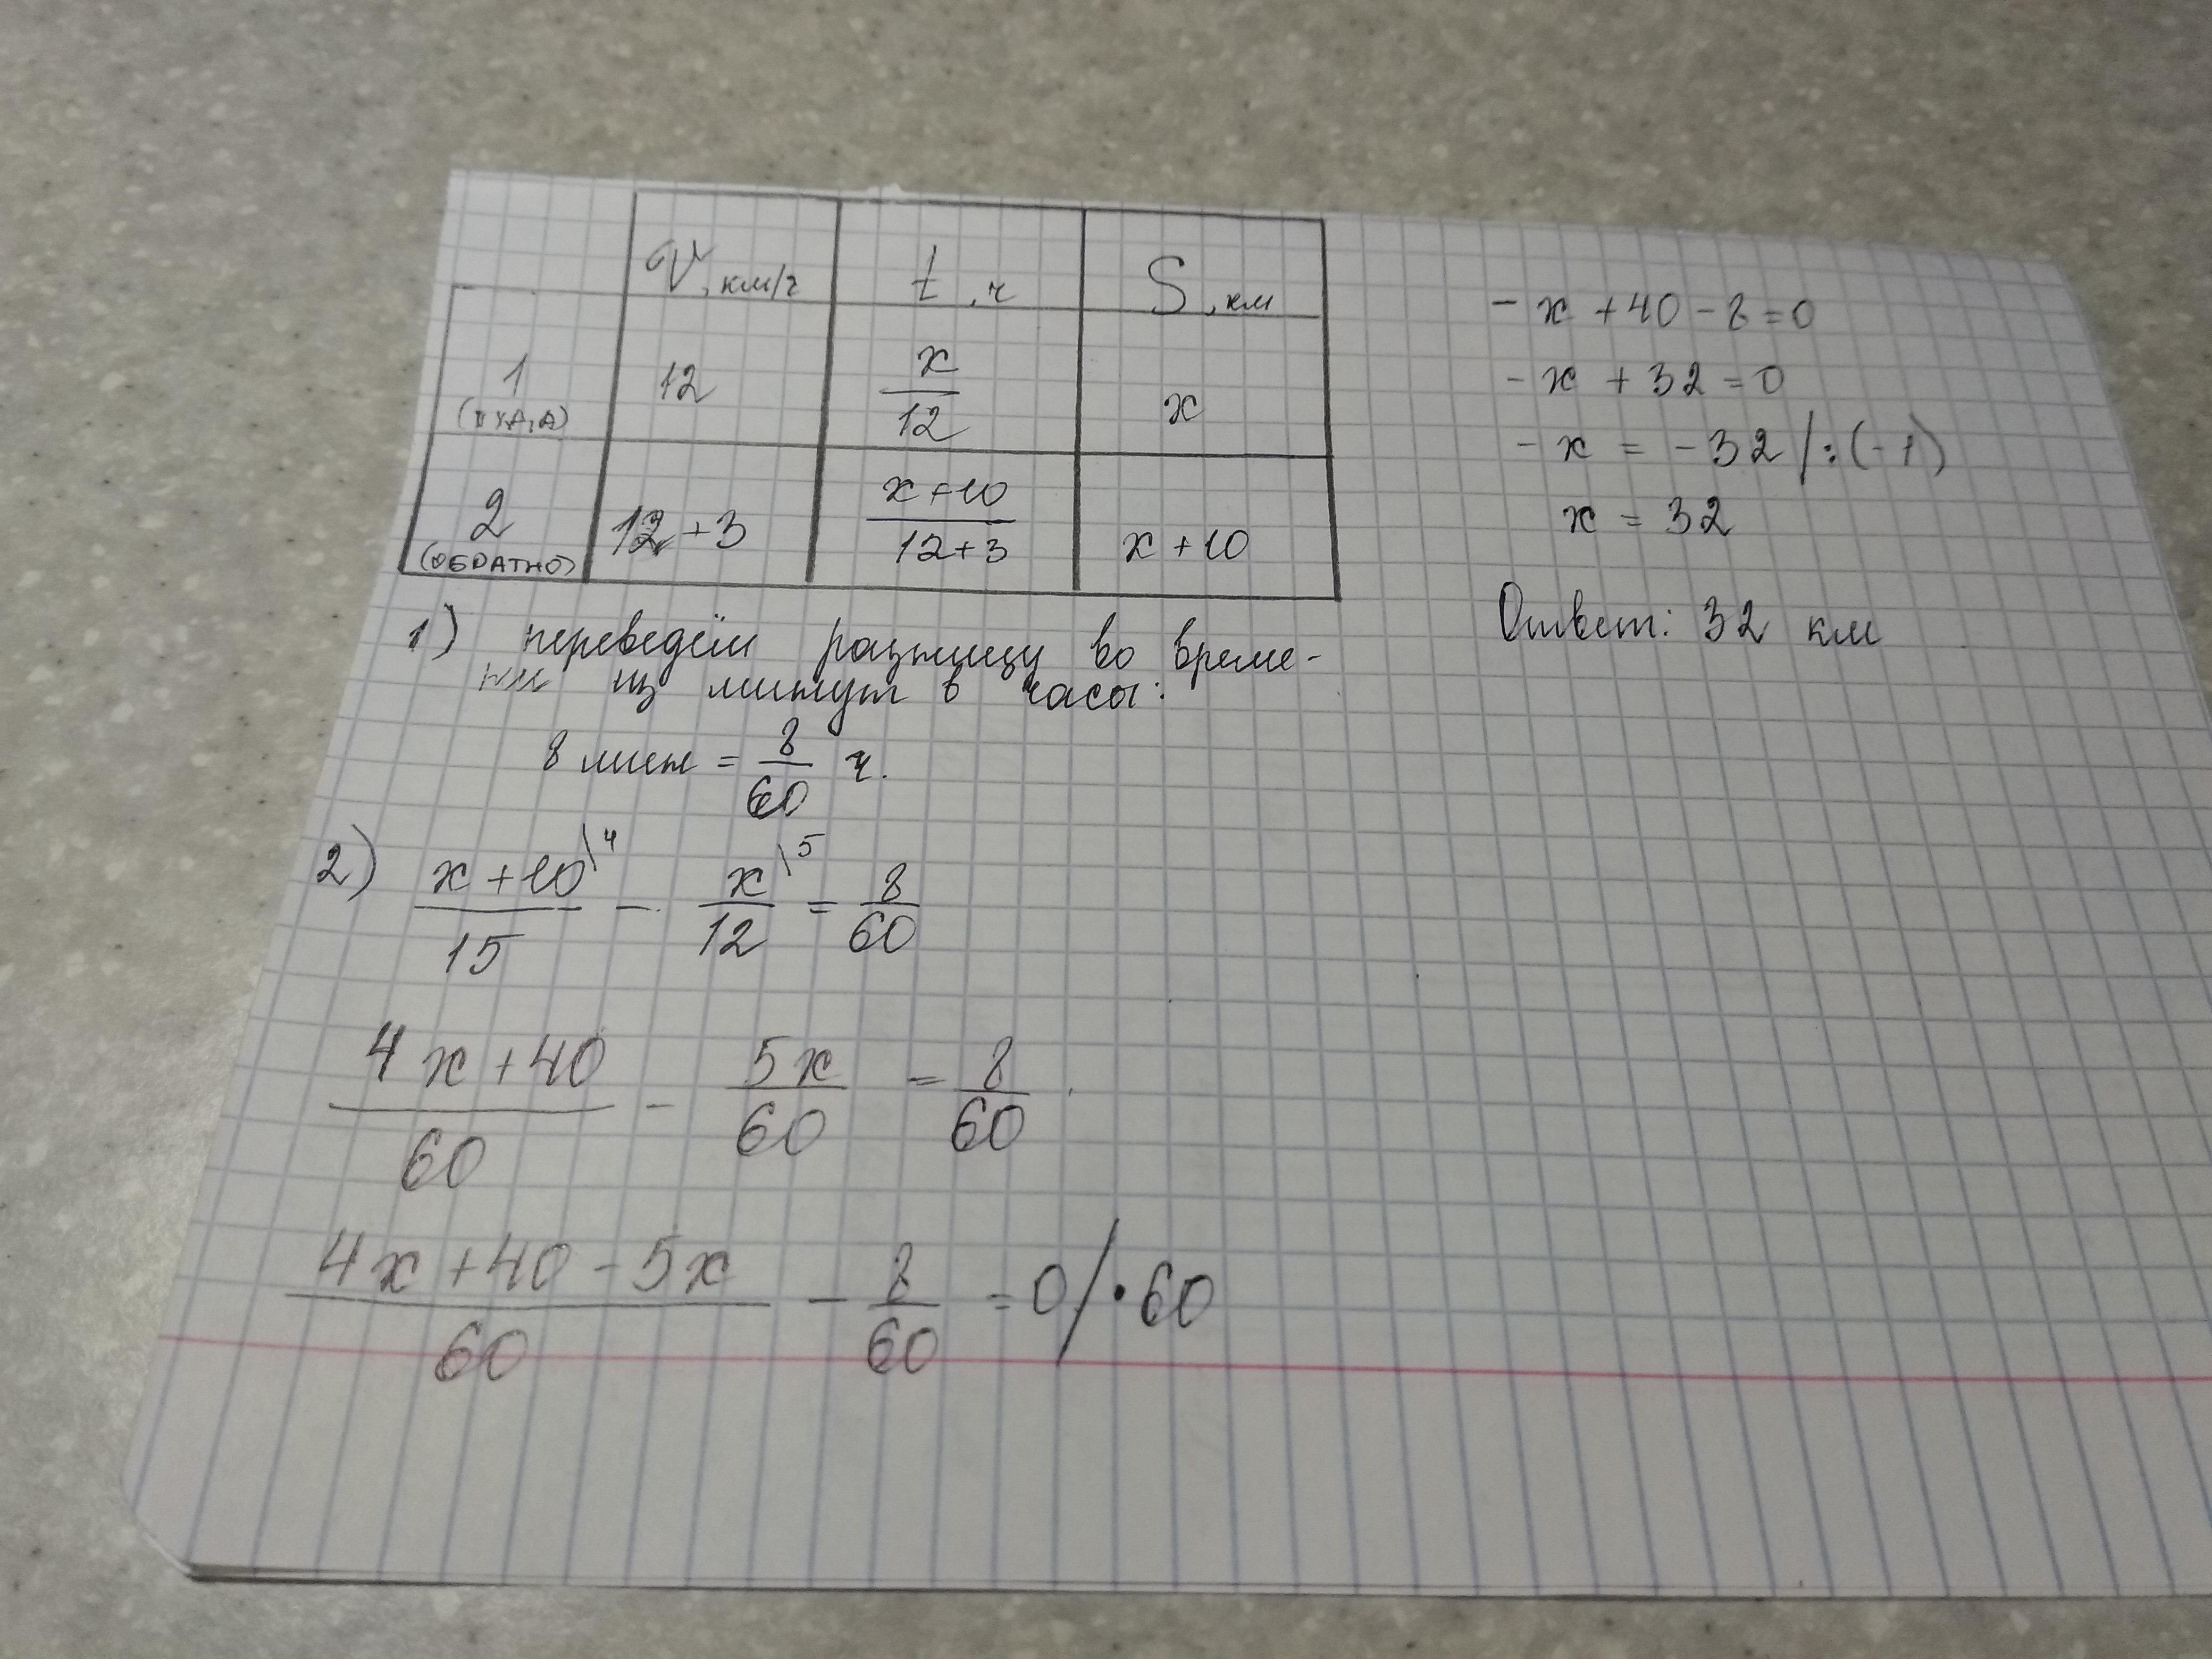 V, км/ч t, ч S, км
1 12 x/12 x
(туда)
2 12+3 (x+10)/(12+3) x+10
(ОБРАТНО)
1) переведём разницу во време-
ни из минут в часы:
8 мин = 8/60 ч.
2) (x+10)\4/15 - x\5/12 = 8/60
(4x+40)/60 - 5x/60 = 8/60
(4x+40-5x)/60 - 8/60 = 0 / •60
-x+40-8=0
-x+32=0
-x = -32 /:(-1)
x = 32
Ответ: 32 км